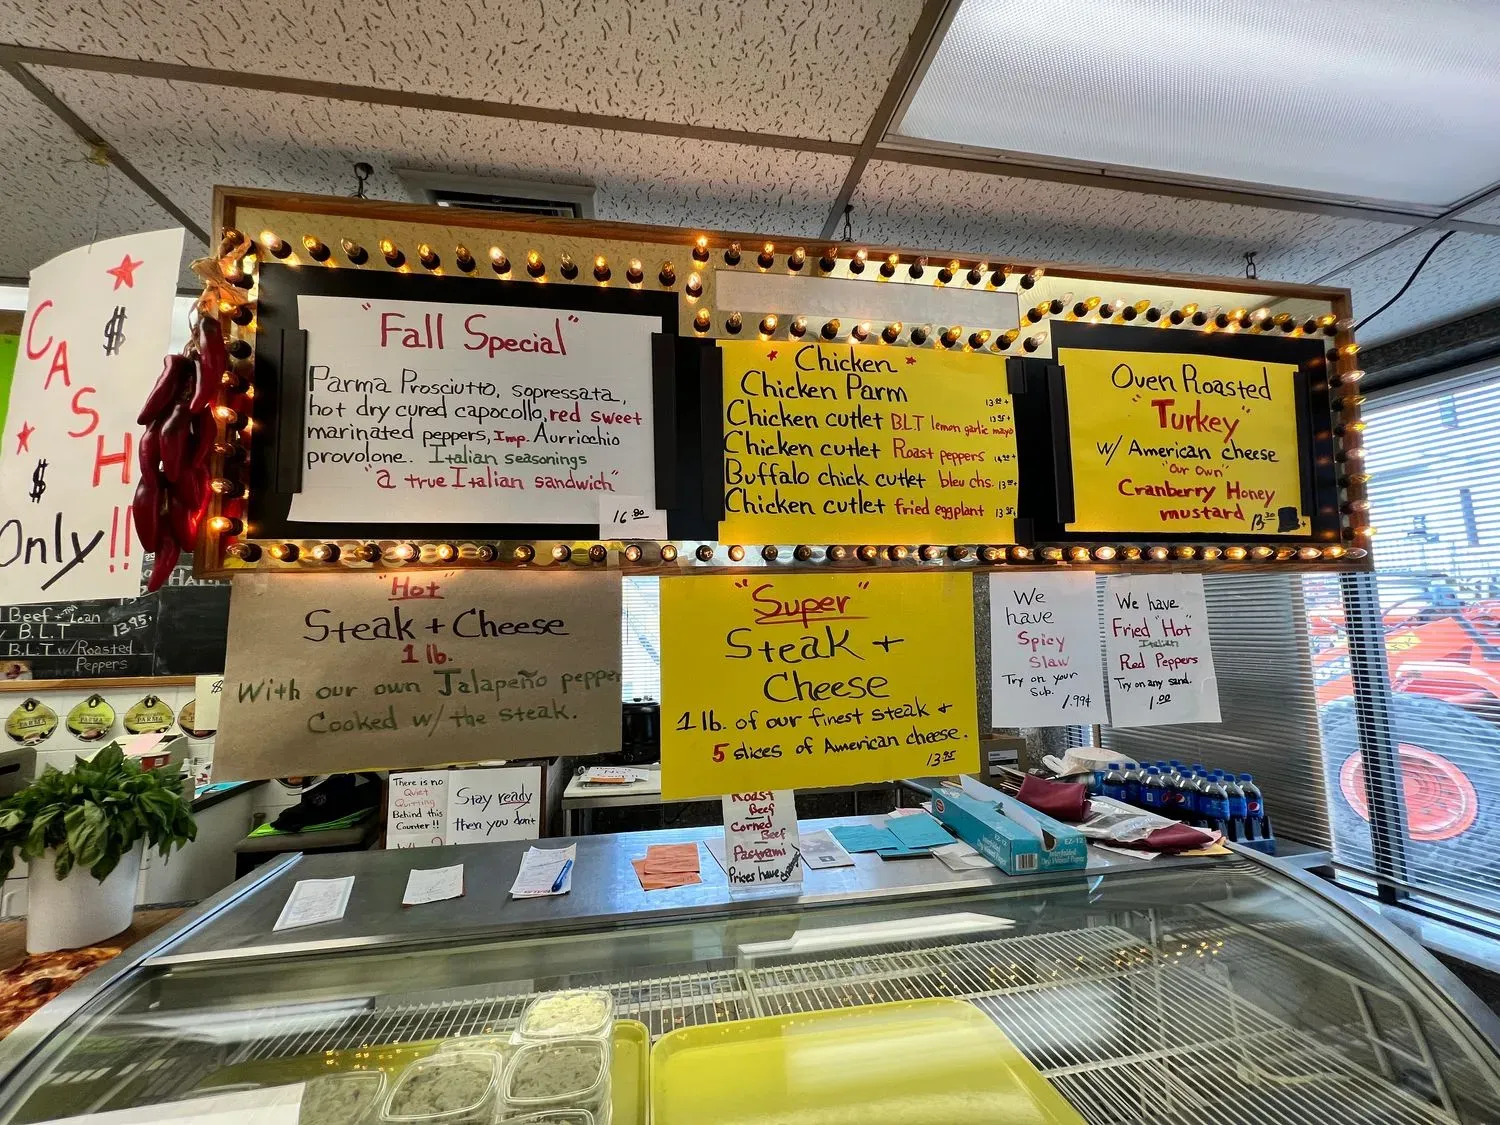 CASH
$
$
Only!!
"Fall Special"
Parma Prosciutto, sopressata,
hot dry cured capocollo, red sweet
marinated peppers, Imp. Aurricchio
provolone. Italian seasonings
"a true Italian sandwich"
16.80
Chicken
Chicken Parm
Chicken cutlet BLT lemon garlic mayo
Chicken cutlet Roast peppers
Buffalo chick cutlet bleu chs.
Chicken cutlet fried eggplant
Oven Roasted
"Turkey"
w/ American cheese
"our own"
Cranberry Honey
mustard
"Hot"
Steak + Cheese
1 lb.
With our own Jalapeño pepper
Cooked w/ the steak.
"Super"
Steak +
Cheese
1 lb. of our finest steak +
5 slices of American cheese.
13.95
We
have
Spicy
Slaw
Try on your
Sub.
1.99¢
We have
Fried "Hot"
Italian
Red Peppers
Try on any sand.
1.00
Beef
Lean
13.95
B.L.T
B.L.T w/Roasted
Peppers
PARMA
PARMA
PARMA
There is no
Quiet
Behind this
Counter!!
Stay ready
then you don't
Roast
Beef
Corned
Beef
Pastrami
Prices have
EZ-12
Interfolded
Dry Waxed Paper